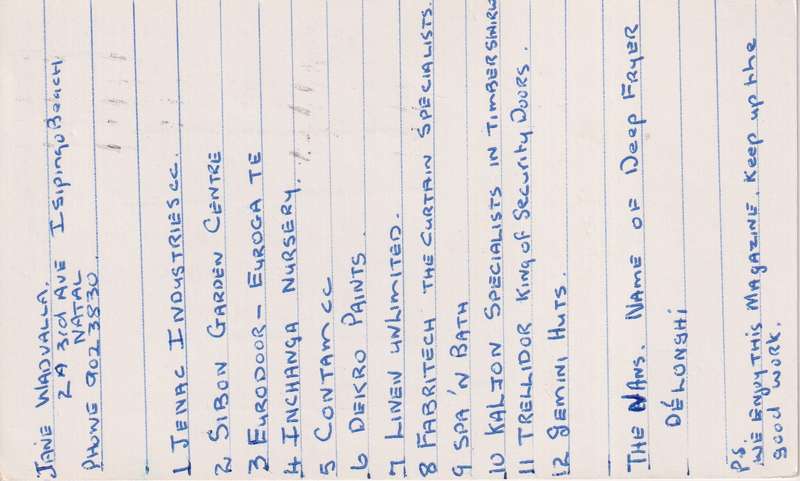 JANE WADVALLA.
2A 3rd AVE Isipingo Beach.
NATAL
PHONE 9023830.
1 JENAC INDUSTRIES CC.
2 SIBON GARDEN CENTRE
3 EURODOOR - EUROGATE
4 INCHANGA NURSERY.
5 CONTAM CC
6 DEKRO PAINTS.
7 LINEN UNLIMITED.
8 FABRITECH THE CURTAIN SPECIALISTS.
9 SPA 'N BATH
10 KALJON SPECIALISTS IN TIMBER
11 TRELLIDOR King of Security Doors.
12 GEMINI HUTS.
THE ANS. NAME OF Deep FRYER
DÉLONGHI
P.S.
WE ENJOY THIS MAGAZINE. Keep up the
good work.